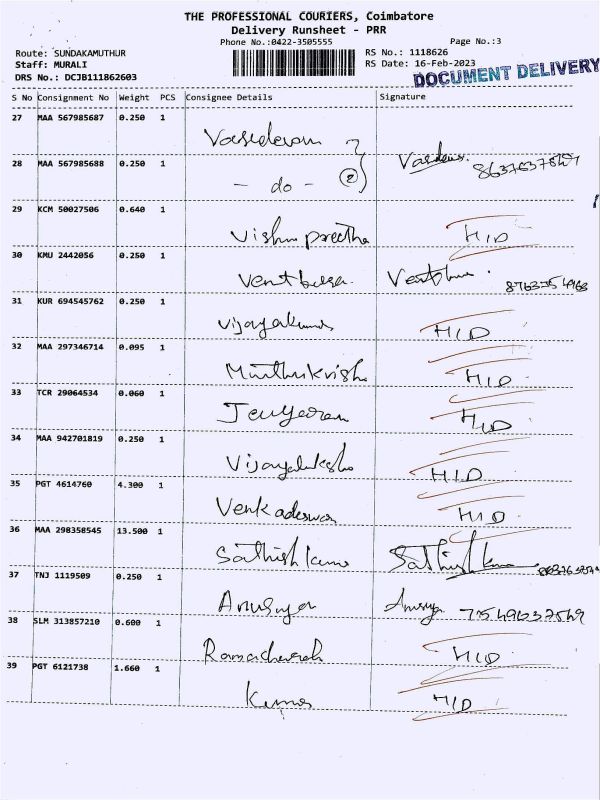 THE PROFESSIONAL COURIERS, Coimbatore
Delivery Runsheet - PRR
Phone No.:0422-3505555 Page No.:3
Route: SUNDAKAMUTHUR RS No.: 1118626
Staff: MURALI RS Date: 16-Feb-2023
DRS No.: DCJB111862603 DOCUMENT DELIVERY
S No Consignment No Weight PCS Consignee Details Signature
27 MAA 567985687 0.250 1
28 MAA 567985688 0.250 1
- do - 2
29 KCM 50027506 0.640 1
Vishnu preetha HID
30 KMU 2442056 0.250 1
31 KUR 694545762 0.250 1
Vijayakumar HID
32 MAA 297346714 0.095 1
Muthukrishn HID
33 TCR 29064534 0.060 1
HID
34 MAA 942701819 0.250 1
HID
35 PGT 4614760 4.300 1
Venkadeswar HID
36 MAA 298358545 13.500 1
Sathish Kumar Sathish Kumar
37 TNJ 1119509 0.250 1
Anusuya Anusuya
38 SLM 313857210 0.600 1
HID
39 PGT 6121738 1.660 1
Kumar HID